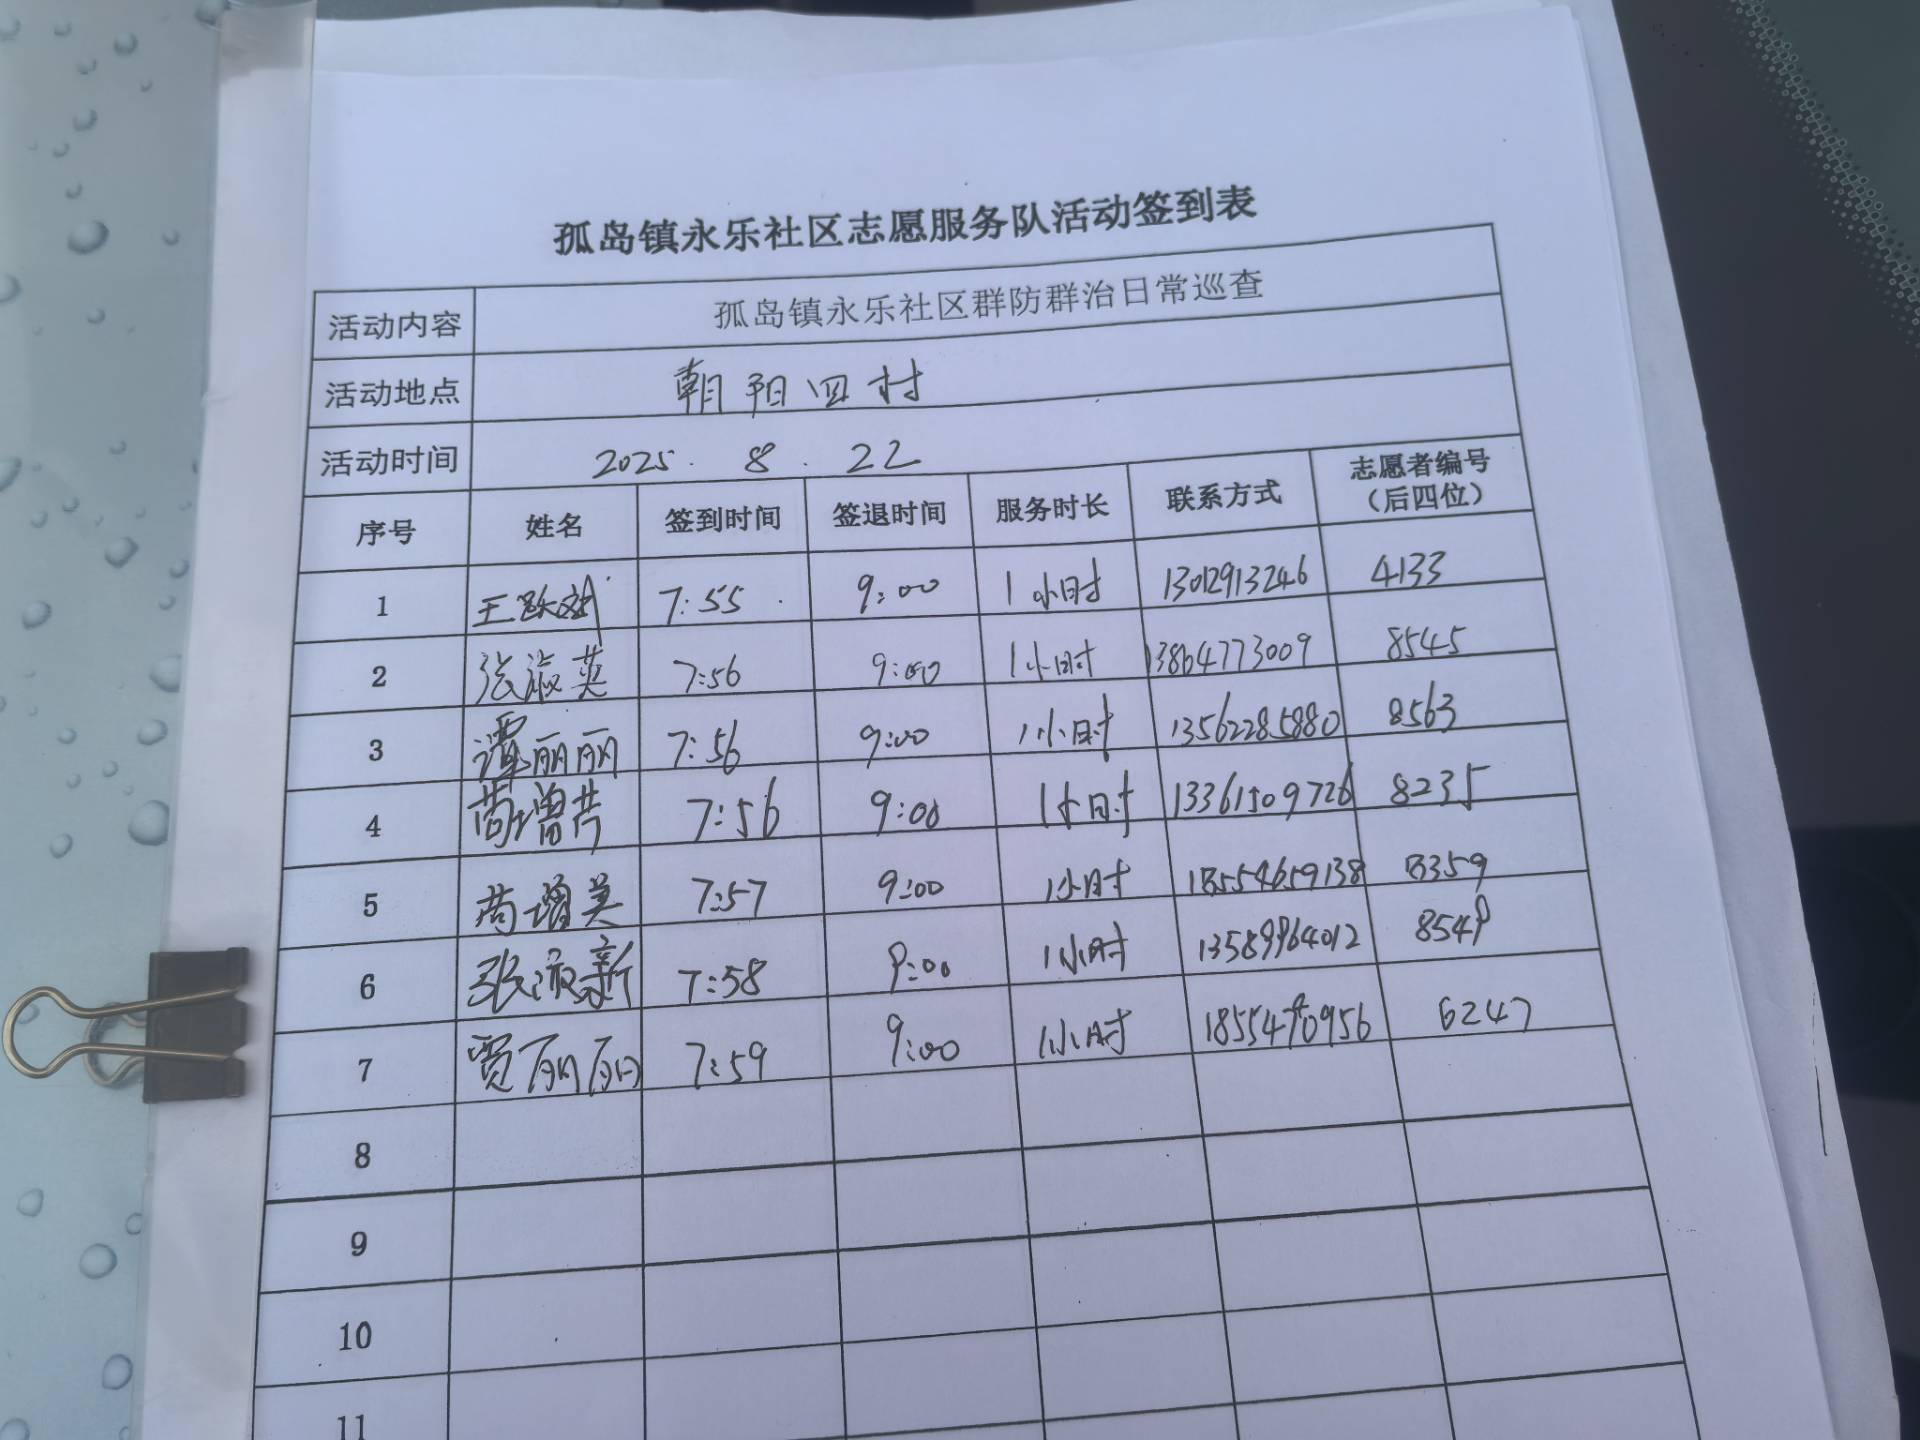 孤岛镇永乐社区志愿服务队活动签到表
活动内容 孤岛镇永乐社区群防群治日常巡查
活动地点 朝阳四村
活动时间 2025.8.22
序号 姓名 签到时间 签退时间 服务时长 联系方式 志愿者编号（后四位）
1 王跃斌 7:55 9:00 1小时 13012913246 4133
2 张淑英 7:56 9:00 1小时 13864773009 8545
3 谭丽丽 7:56 9:00 1小时 13562285880 8563
4 7:56 9:00 1小时 13361509726 8235
5 7:57 9:00 1小时 18554659138 8359
6 张淑新 7:58 9:00 1小时 13589964012 8549
7 贾丽丽 7:59 9:00 1小时 6247
8
9
10
11